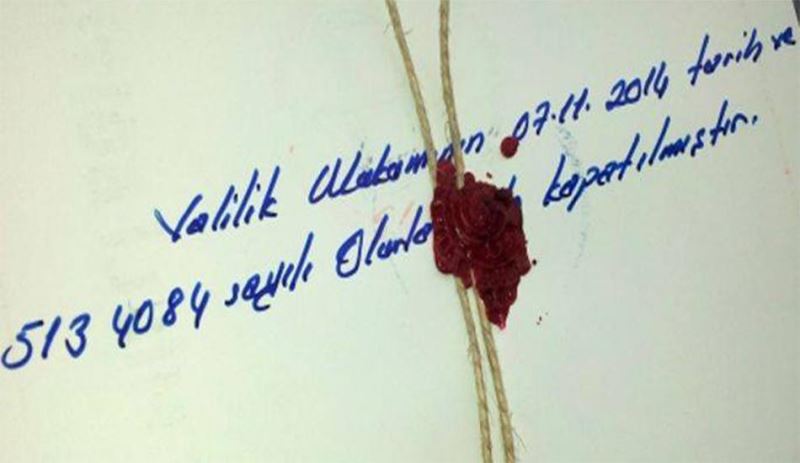 Valilik Makamının 07.11.2014 tarih ve
5134084 sayılı Olurla kapatılmıştır.